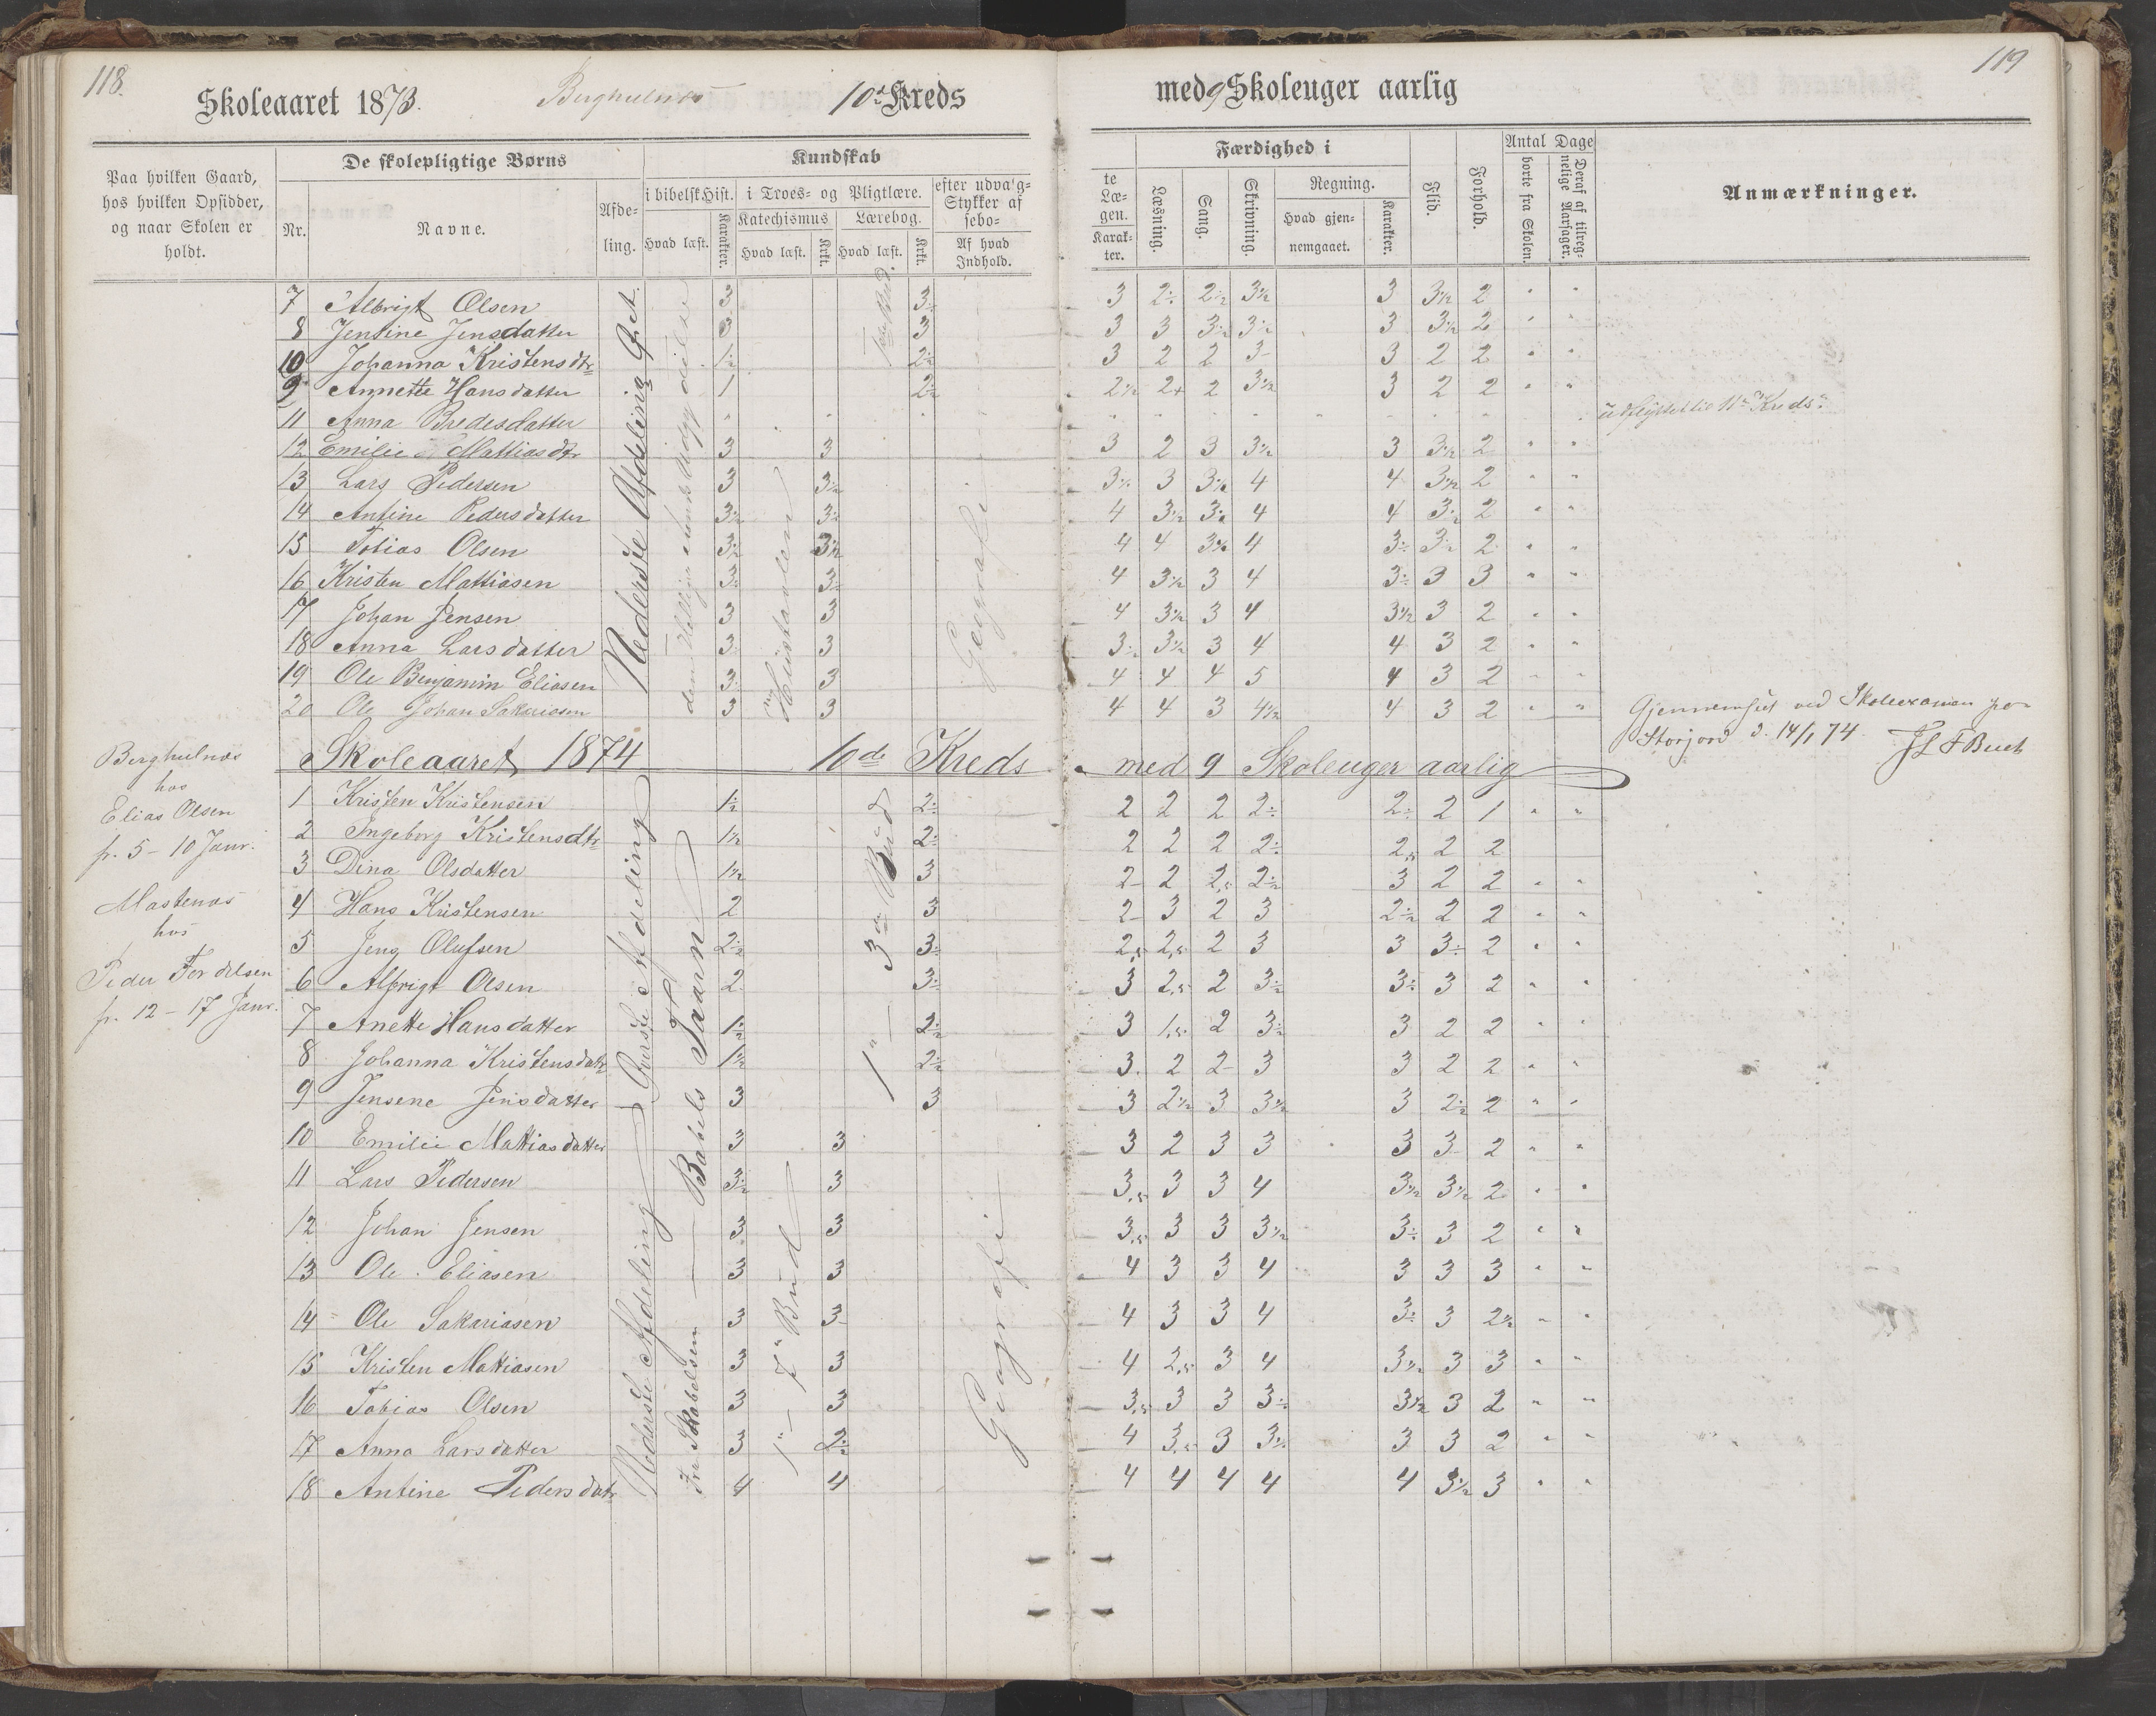 118.
119
Skoleaaret 1873. Berghulnæs 10de Kreds med 9 Skoleuger aarlig
Paa hvilken Gaard, hos hvilken Opsidder, og naar Skolen er holdt.
De skolepligtige Børns
Nr. Navne. Afdeling.
Kundskab
i bibelsk Hist. i Troes- og Pligtlære. efter udvalgte Stykker af Læsebogen.
Hvad læst. Karakter. Katechismus Hvad læst. Krkt. Lærebog. Hvad læst. Krkt. Af hvad Indhold. Karakter.
Færdighed i
Læsning. Sang. Skrivning. Regning. Hvad gjennemgaaet. Karakter.
Flid. Forhold. Antal Dage borte fra Skolen. Deraf af tilregnelige Aarsager.
Anmærkninger.
7 Albrigt Olsen 3 3÷ 3 2÷ 2½ 3½ 3 3½ 2 " "
8 Jensine Jensdatter 3 3 3 3 3½ 3½ 3 3½ 2 " "
10 Johanna Kristensdtr 1½ 2½ 3 2 2 3- 3 2 2 " "
9 Annette Hansdatter 1 2½ 2½ 2+ 2 3½ 3 2 2 " "
11 Anna Bredesdatter udflyttet til 11te Kreds.
12 Emilie Mattiasdtr 3 3 3 2 3 3½ 3 3½ 2 " "
13 Lars Pedersen 3 3½ 3½ 3 3½ 4 4 3½ 2 " "
14 Antine Pedersdatter 3½ 3÷ 4 3½ 3÷ 4 4 3÷ 2 " "
15 Tobias Olsen 3½ 3½ 4 4 3¾ 4 3÷ 3÷ 2 " "
16 Kristen Mattiasen 3÷ 3÷ 4 3½ 3 4 3÷ 3 3 " "
17 Johan Jensen 3 3 4 3½ 3 4 3½ 3 2 " "
18 Anna Larsdatter 3 3 3½ 3½ 3 4 4 3 2 " "
19 Ole Benjamin Eliasen 3 3 4 4 4 5 4 3 2 " "
20 Ole Johan Sakariasen 3 3 4 4 3 4½ 4 3 2 " "
Nederste Afdeling
Huustavlen
Geografi
Gjennemseet ved Skoleexamen paa
Storjord d. 14/1 74.
Skoleaaret 1874 10de Kreds med 9 Skoleuger aarlig
Berghulnæs
hos
Elias Olsen
fr. 5 – 10 Janr.
Mastenæs
hos
Peder Tordelsen
fr. 12 – 17 Janr.
1 Kristen Kristensen 1½ 2÷ 2 2 2 2÷ 2÷ 2 1 " "
2 Ingeborg Kristensdtr 1½ 2÷ 2 2 2 2÷ 2,5 2 2
3 Dina Olsdatter 1½ 3 2- 2 2,5 2½ 3 2 2 " "
4 Hans Kristensen 2 3 2- 3 2 3 2½ 2 2 " "
5 Jens Olufsen 2½ 3÷ 2,5 2,5 2 3 3 3÷ 2 " "
6 Albrigt Olsen 2 3÷ 3 2,5 2 3½ 3÷ 3 2 " "
7 Anette Hansdatter 1½ 2½ 3 1,5 2 3½ 3 2 2 " "
8 Johanna Kristensdatr 1½ 2½ 3 2 2- 3 3 2 2 " "
9 Jensene Jensdatter 3 3 3 2½ 3 3½ 3 2½ 2 " "
10 Emilie Mattiasdatter 3 3 3 2 3 3 3 3- 2 " "
11 Lars Pedersen 3½ 3 3,5 3 3 4 3½ 3½ 2 " "
12 Johan Jensen 3 3 3,5 3 3 3½ 3÷ 3 2 " "
13 Ole Eliasen 3 3 4 3 3 4 3 3 3 " "
14 Ole Sakariasen 3 3- 4 3 3 4 3÷ 3 2½ " "
15 Kristen Mattiasen 3 3 4 2,5 3 4 3½ 3 3 " "
16 Tobias Olsen 3 3 3,5 3 3 3½ 3½ 3 2 " "
17 Anna Larsdatter 3 2½ 4 3,5 3 3½ 3 3 2 " "
18 Antine Pedersdatr 4 4 4 4 4 4 4 3½ 3 " "
Øverste Afdeling
Nederste Afdeling
Fra Skabelsen — Babels Taarn
3die Bud
1" – 7" Bud
Geografi